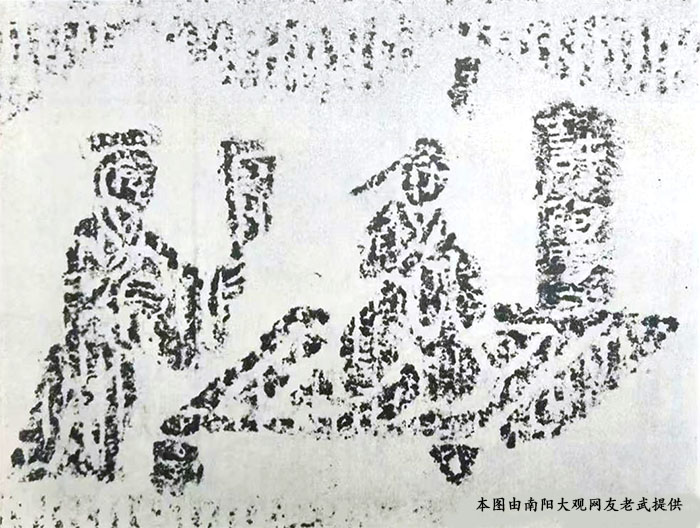 許阿瞿
本图由南阳大观网友老武提供